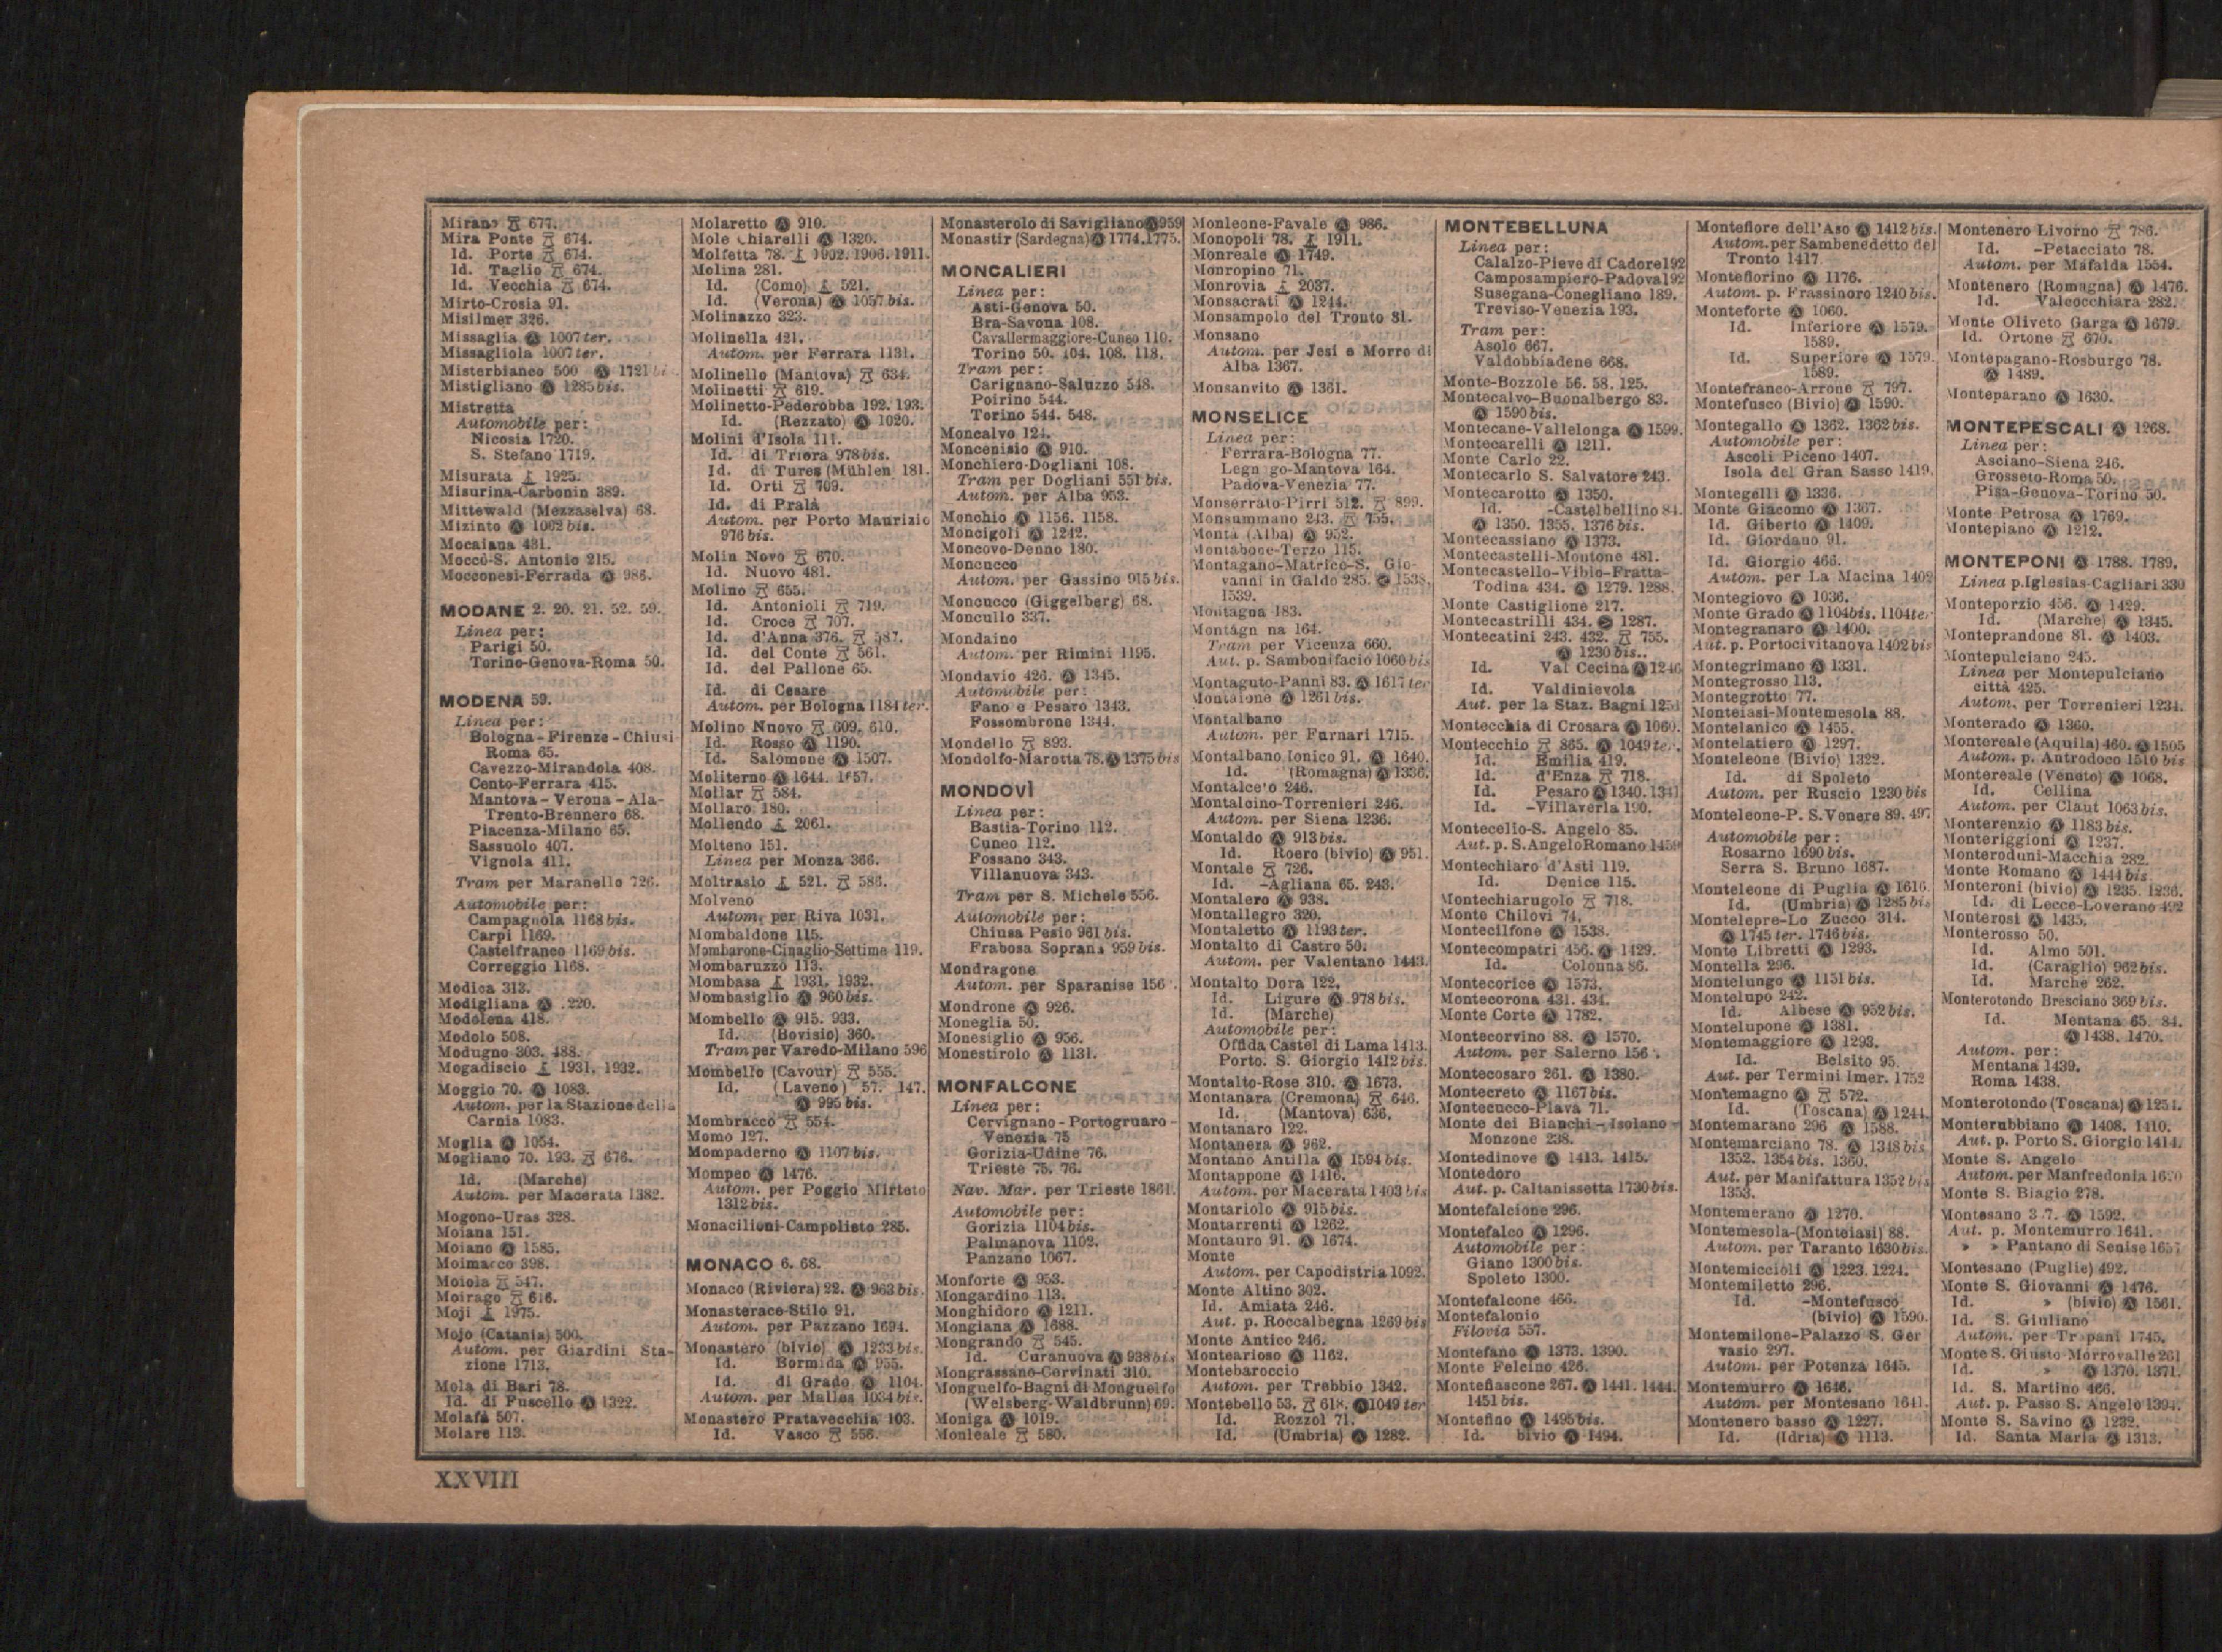 Mirano 677.
Mira Ponte 674.
Id. Porte 674.
Id. Taglio 674.
Id. Vecchia 674.
Mirto-Crosia 91.
Misilmer 326.
Missaglia Ⓐ 1007 ter.
Missagliola 1007 ter.
Misterbianco 500 Ⓐ 1721
Mistigliano Ⓐ 1285 bis.
Mistretta
Automobile per:
Nicosia 1720.
S. Stefano 1719.
Misurata 1925.
Misurina-Carbonin 389.
Mittewald (Mezzaselva) 68.
Mizinto Ⓐ 1062 bis.
Mocaiana 431.
Moccò-S. Antonio 215.
Mocconesi-Ferrada Ⓐ 986.
MODANE 2. 20. 21. 52. 59.
Linea per:
Parigi 50.
Torino-Genova-Roma 50.
MODENA 59.
Linea per:
Bologna-Firenze-Chiusi-
Roma 65.
Cavezzo-Mirandola 408.
Cento-Ferrara 415.
Mantova-Verona-Ala-
Trento-Brennero 68.
Piacenza-Milano 65.
Sassuolo 407.
Vignola 411.
Tram per Maranello 726.
Automobile per:
Campagnola 1168 bis.
Carpi 1169.
Castelfranco 1169 bis.
Correggio 1168.
Modica 313.
Modigliana Ⓐ 220.
Modolena 418.
Modolo 508.
Modugno 303. 488.
Mogadiscio 1931. 1932.
Moggio 70. Ⓐ 1083.
Autom. per la Stazione della
Carnia 1083.
Moglia Ⓐ 1054.
Mogliano 70. 193. 676.
Id. (Marche)
Autom. per Macerata 1382.
Mogoro-Uras 328.
Moiana 151.
Moiano Ⓐ 1585.
Moimacco 398.
Moiola 547.
Moirago 616.
Moji 1975.
Mojo (Catania) 500.
Autom. per Giardini Sta-
zione 1713.
Mola di Bari 78.
Id. di Fuscello Ⓐ 1322.
Molafà 507.
Molare 113.
Molaretto Ⓐ 910.
Mole Chiarelli Ⓐ 1320.
Molfetta 78. 1902. 1906. 1911.
Molina 281.
Id. (Como) 521.
Id. (Verona) Ⓐ 1057 bis.
Molinazzo 323.
Molinella 421.
Autom. per Ferrara 1131.
Molinello (Mantova) 634.
Molinetti 619.
Molinetto-Pederobba 192. 193.
Id. (Rezzato) Ⓐ 1020.
Molini d'Isola 111.
Id. di Triora 978 bis.
Id. di Tures (Mühlen 181.
Id. Orti 709.
Id. di Pralà
Autom. per Porto Maurizio
976 bis.
Molin Novo 670.
Id. Nuovo 481.
Molino 655.
Id. Antonioli 719.
Id. Croce 707.
Id. d'Anna 376. 587.
Id. del Conte 561.
Id. del Pallone 65.
Id. di Cesare
Autom. per Bologna 1184 ter.
Molino Nuovo 609. 610.
Id. Rosso Ⓐ 1190.
Id. Salomone Ⓐ 1507.
Moliterno Ⓐ 1644. 1657.
Mollar 584.
Mollaro 180.
Mollendo 2061.
Molteno 151.
Linea per Monza 366.
Moltrasio 521. 588.
Molveno
Autom. per Riva 1031.
Mombaldone 115.
Mombarone-Cinaglio-Settime 119.
Mombaruzzo 113.
Mombasa 1931. 1932.
Mombasiglio Ⓐ 960 bis.
Mombello Ⓐ 915. 933.
Id. (Bovisio) 360.
Tram per Varedo-Milano 596
Mombello (Cavour) 555.
Id. (Laveno) 57. 147.
Ⓐ 995 bis.
Mombracco 554.
Momo 127.
Mompaderno Ⓐ 1107 bis.
Mompeo Ⓐ 1476.
Autom. per Poggio Mirteto
1312 bis.
Monacilioni-Campolieto 285.
MONACO 6. 68.
Monaco (Riviera) 22. Ⓐ 963 bis.
Monasterace-Stilo 91.
Autom. per Pazzano 1694.
Monastero (bivio) Ⓐ 1233 bis.
Id. Bormida Ⓐ 955.
Id. di Grado Ⓐ 1104.
Autom. per Malles 1034 bis.
Monastero Pratavecchia 103.
Id. Vasco 556.
Monasterolo di Savigliano Ⓐ 959
Monastir (Sardegna) Ⓐ 1774. 1775.
MONCALIERI
Linea per:
Asti-Genova 50.
Bra-Savona 108.
Cavallermaggiore-Cuneo 110.
Torino 50. 104. 108. 118.
Tram per:
Carignano-Saluzzo 548.
Poirino 544.
Torino 544. 548.
Moncalvo 124.
Moncenisio Ⓐ 910.
Monchiero-Dogliani 108.
Tram per Dogliani 551 bis.
Autom. per Alba 953.
Monchio Ⓐ 1156. 1158.
Moncigoli Ⓐ 1242.
Moncovo-Denno 180.
Moncucco
Autom. per Gassino 915 bis.
Moncucco (Giggelberg) 68.
Moncullo 337.
Mondaino
Autom. per Rimini 1195.
Mondavio 426. Ⓐ 1345.
Automobile per:
Fano e Pesaro 1343.
Fossombrone 1344.
Mondello 893.
Mondolfo-Marotta 78. Ⓐ 1375 bis
MONDOVÌ
Linea per:
Bastia-Torino 112.
Cuneo 112.
Fossano 343.
Villanuova 343.
Tram per S. Michele 556.
Automobile per:
Chiusa Pesio 961 bis.
Frabosa Soprana 959 bis.
Mondragone
Autom. per Sparanise 156
Mondrone Ⓐ 926.
Moneglia 50.
Monesiglio Ⓐ 956.
Monestirolo Ⓐ 1131.
MONFALCONE
Linea per:
Cervignano-Portogruaro-
Venezia 75
Gorizia-Udine 76.
Trieste 75. 76.
Nav. Mar. per Trieste 1861.
Automobile per:
Gorizia 1104 bis.
Palmanova 1102.
Panzano 1067.
Monforte Ⓐ 953.
Mongardino 113.
Monghidoro Ⓐ 1211.
Mongiana Ⓐ 1688.
Mongrando 545.
Id. Curanuova Ⓐ 938 bis
Mongrassano-Cervinati 310.
Monguelfo-Bagni di Monguelfo
(Welsberg-Waldbrunn) 69.
Moniga Ⓐ 1019.
Monleale 580.
Monleone-Favale Ⓐ 986.
Monopoli 78. 1911.
Monreale Ⓐ 1749.
Monropino 71.
Monrovia 2037.
Monsacrati Ⓐ 1244.
Monsampolo del Tronto 81.
Monsano
Autom. per Jesi e Morro di
Alba 1367.
Monsanvito Ⓐ 1361.
MONSELICE
Linea per:
Ferrara-Bologna 77.
Legn go-Mantova 164.
Padova-Venezia 77.
Monserrato-Pirri 512. 899.
Monsummano 243. 755.
Montà (Alba) Ⓐ 952.
Montabone-Terzo 115.
Montagano-Matrice-S. Gio-
vanni in Galdo 285. 1538.
1539.
Montagna 183.
Montágn na 164.
Tram per Vicenza 660.
Aut. p. Sambonifacio 1060 bis
Montaguto-Panni 83. Ⓐ 1617 ter
Montaione Ⓐ 1261 bis.
Montalbano
Autom. per Furnari 1715.
Montalbano Ionico 91. Ⓐ 1640.
Id. (Romagna) Ⓐ 1336.
Montalceto 246.
Montalcino-Torrenieri 246.
Autom. per Siena 1236.
Montaldo Ⓐ 913 bis.
Id. Roero (bivio) Ⓐ 951.
Montale 726.
Id. -Agliana 65. 243.
Montalero Ⓐ 938.
Montallegro 320.
Montaletto Ⓐ 1193 ter.
Montalto di Castro 50.
Autom. per Valentano 1443.
Montalto Dora 122.
Id. Ligure Ⓐ 978 bis.
Id. (Marche)
Automobile per:
Offida Castel di Lama 1413.
Porto. S. Giorgio 1412 bis.
Montalto-Rose 310. Ⓐ 1673.
Montanara (Cremona) 646.
Id. (Mantova) 636.
Montanaro 122.
Montanera Ⓐ 962.
Montano Antilla Ⓐ 1594 bis.
Montappone Ⓐ 1416.
Autom. per Macerata 1403 bis
Montariolo Ⓐ 915 bis.
Montarrenti Ⓐ 1262.
Montauro 91. Ⓐ 1674.
Monte
Autom. per Capodistria 1092.
Monte Altino 302.
Id. Amiata 246.
Aut. p. Roccalbegna 1269 bis
Monte Antico 246.
Montearioso Ⓐ 1162.
Montebaroccio
Autom. per Trebbio 1342.
Montebello 53. 618. Ⓐ 1049 ter
Id. Rozzol 71.
Id. (Umbria) Ⓐ 1282.
MONTEBELLUNA
Linea per:
Calalzo-Pieve di Cadore 192
Camposampiero-Padova 192
Susegana-Conegliano 189.
Treviso-Venezia 193.
Tram per:
Asolo 667.
Valdobbiadene 668.
Monte-Bozzole 56. 58. 125.
Montecalvo-Buonalbergo 83.
Ⓐ 1590 bis.
Montecane-Vallelonga Ⓐ 1599.
Montecarelli Ⓐ 1211.
Monte Carlo 22.
Montecarlo S. Salvatore 243.
Montecarotto Ⓐ 1350.
Id. -Castelbellino 84.
Ⓐ 1350. 1355. 1376 bis.
Montecassiano Ⓐ 1373.
Montecastelli-Montone 481.
Montecastello-Vibio-Fratta-
Todina 434. Ⓐ 1279. 1288.
Monte Castiglione 217.
Montecastrilli 434. 1287.
Montecatini 243. 432. 755.
Ⓐ 1230 bis..
Id. Val Cecina Ⓐ 1246
Id. Valdinievola
Aut. per la Staz. Bagni 125
Montecchia di Crosara Ⓐ 1060.
Montecchio 865. Ⓐ 1049 ter.
Id. Emilia 419.
Id. d'Enza 718.
Id. Pesaro Ⓐ 1340. 1341
Id. -Villaverla 190.
Montecelio-S. Angelo 85.
Aut. p. S. Angelo Romano 1459
Montechiaro d'Asti 119.
Id. Denice 115.
Montechiarugolo 718.
Monte Chilovi 74.
Montecilfone Ⓐ 1538.
Montecompatri 456. Ⓐ 1429.
Id. Colonna 86.
Montecorice Ⓐ 1573.
Montecorona 431. 434.
Monte Corte Ⓐ 1782.
Montecorvino 88. Ⓐ 1570.
Autom. per Salerno 156 .
Montecosaro 261. Ⓐ 1380.
Montecreto Ⓐ 1167 bis.
Montecucco-Piava 71.
Monte dei Bianchi-Isolano-
Monzone 238.
Montedinove Ⓐ 1413. 1415.
Montedoro
Aut. p. Caltanissetta 1730 bis.
Montefalcione 296.
Montefalco Ⓐ 1296.
Automobile per:
Giano 1300 bis.
Spoleto 1300.
Montefalcone 466.
Montefalonio
Filovia 557.
Montefano Ⓐ 1373. 1390.
Monte Felcino 426.
Montefiascone 267. Ⓐ 1441. 1444.
1451 bis.
Montefino Ⓐ 1495 bis.
Id. bivio Ⓐ 1494.
Montefiore dell'Aso Ⓐ 1412 bis.
Autom. per Sambenedetto del
Tronto 1417
Montefiorino Ⓐ 1176.
Autom. p. Frassinoro 1240 bis.
Monteforte Ⓐ 1060.
Id. Inferiore Ⓐ 1579.
1589.
Id. Superiore Ⓐ 1579.
1589.
Montefranco-Arrone 797.
Montefusco (Bivio) Ⓐ 1590.
Montegallo Ⓐ 1362. 1362 bis.
Automobile per:
Ascoli Piceno 1407.
Isola del Gran Sasso 1419.
Montegelli Ⓐ 1336.
Monte Giacomo Ⓐ 1367.
Id. Giberto Ⓐ 1409.
Id. Giordano 91.
Id. Giorgio 466.
Autom. per La Macina 1402
Montegiovo Ⓐ 1036.
Monte Grado Ⓐ 1104 bis. 1104 ter
Montegranaro Ⓐ 1400.
Aut. p. Portocivitanova 1402 bis
Montegrimano Ⓐ 1331.
Montegrosso 113.
Montegrotto 77.
Monteiasi-Montemesola 88.
Montelanico Ⓐ 1455.
Montelatiero Ⓐ 1297.
Monteleone (Bivio) 1322.
Id. di Spoleto
Autom. per Ruscio 1230 bis
Monteleone-P. S. Venere 89. 497
Automobile per:
Rosarno 1690 bis.
Serra S. Bruno 1687.
Monteleone di Puglia Ⓐ 1616.
Id. (Umbria) Ⓐ 1285 bis
Montelepre-Lo Zucco 314.
Ⓐ 1745 ter. 1746 bis.
Monte Libretti Ⓐ 1293.
Montella 296.
Montelungo Ⓐ 1151 bis.
Montelupo 242.
Id. Albese Ⓐ 952 bis.
Montelupone Ⓐ 1381.
Montemaggiore Ⓐ 1293.
Id. Belsito 95.
Aut. per Termini Imer. 1752
Montemagno Ⓐ 572.
Id. (Toscana) Ⓐ 1244.
Montemarano 296 Ⓐ 1588.
Montemarciano 78. Ⓐ 1348 bis
1352. 1354 bis. 1360.
Aut. per Manifattura 1352 bis
1353.
Montemerano Ⓐ 1270.
Montemesola-(Monteiasi) 88.
Autom. per Taranto 1630 bis.
Montemiccioli Ⓐ 1223. 1224.
Montemiletto 296.
Id. -Montefusco
(bivio) Ⓐ 1590.
Montemilone-Palazzo S. Ger
vasio 297.
Autom. per Potenza 1645.
Montemurro Ⓐ 1646.
Autom. per Montesano 1641.
Montenero basso Ⓐ 1227.
Id. (Idria) Ⓐ 1113.
Montenero Livorno 786.
Id. -Petacciato 78.
Autom. per Mafalda 1554.
Montenero (Romagna) Ⓐ 1476.
Id. Valcocchiara 282.
Monte Oliveto Garga Ⓐ 1679.
Id. Ortone 670.
Montepagano-Rosburgo 78.
Ⓐ 1489.
Monteparano Ⓐ 1630.
MONTEPESCALI Ⓐ 1268.
Linea per:
Asciano-Siena 246.
Grosseto-Roma 50.
Pisa-Genova-Torino 50.
Monte Petrosa Ⓐ 1769.
Montepiano Ⓐ 1212.
MONTEPONI Ⓐ 1788. 1789.
Linea p. Iglesias-Cagliari 330
Monteporzio 456. Ⓐ 1429.
Id. (Marche) Ⓐ 1345.
Monteprandone 81. Ⓐ 1403.
Montepulciano 245.
Linea per Montepulciano
città 425.
Autom. per Torrenieri 1234.
Monterado Ⓐ 1360.
Montereale (Aquila) 460. Ⓐ 1505
Autom. p. Antrodoco 1510 bis
Montereale (Veneto) Ⓐ 1068.
Id. Cellina
Autom. per Claut 1063 bis.
Monterenzio Ⓐ 1183 bis.
Monteriggioni Ⓐ 1237.
Monteroduni-Macchia 282.
Monte Romano Ⓐ 1444 bis
Monteroni (bivio) Ⓐ 1235. 1236.
Id. di Lecce-Loverano 492
Monterosi Ⓐ 1435.
Monterosso 50.
Id. Almo 501.
Id. (Caraglio) 962 bis.
Id. Marche 262.
Monterotondo Bresciano 369 bis.
Id. Mentana 65. 84.
Ⓐ 1438. 1470.
Autom. per:
Mentana 1439.
Roma 1438.
Monterotondo (Toscana) Ⓐ 1251.
Monterubbiano Ⓐ 1408. 1410.
Aut. p. Porto S. Giorgio 1414.
Monte S. Angelo
Autom. per Manfredonia 1620
Monte S. Biagio 278.
Montesano 3 7. Ⓐ 1592.
Aut. p. Montemurro 1641.
» » Pantano di Senise 1657
Montesano (Puglie) 492.
Monte S. Giovanni Ⓐ 1476.
Id. » (bivio) Ⓐ 1561.
Id. S. Giuliano
Autom. per Tr pani 1745.
Monte S. Giusto-Morrovalle 261
Id. » Ⓐ 1370. 1371.
Id. S. Martino 466.
Aut. p. Passo S. Angelo 1394.
Monte S. Savino Ⓐ 1232.
Id. Santa Maria Ⓐ 1313.
XXVIII